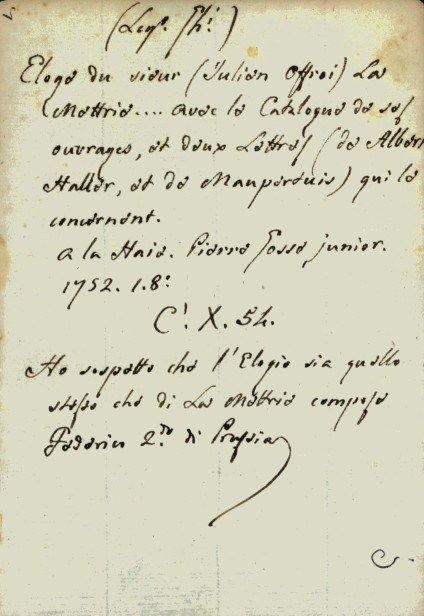 (Leg.º Th.º)
Eloge du sieur (Julien Offroi) La
Mettrie.... avec le Catalogue de ses
ouvrages, et deux Lettres (de Albert
Haller, et de Mauperduis) qui le
concernent.
A la Haie. Pierre Gosse junior.
1752. 1.8.º
C.¹ X. 54.
Ho sospetto che l'Elogio sia quello
stesso che di La Mettrie compose
Federico 2.do di Prussia